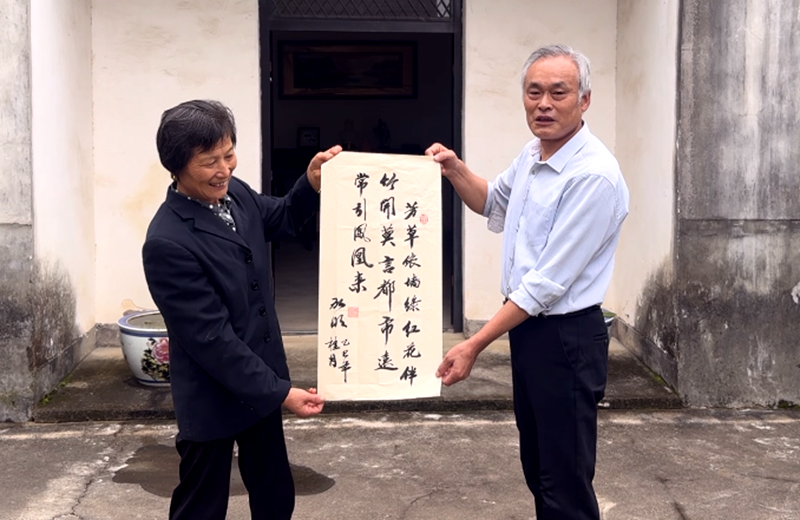 芳草依墙绿红花伴
竹开莫言都市远
常引凤凰来
乙巳年
桂月